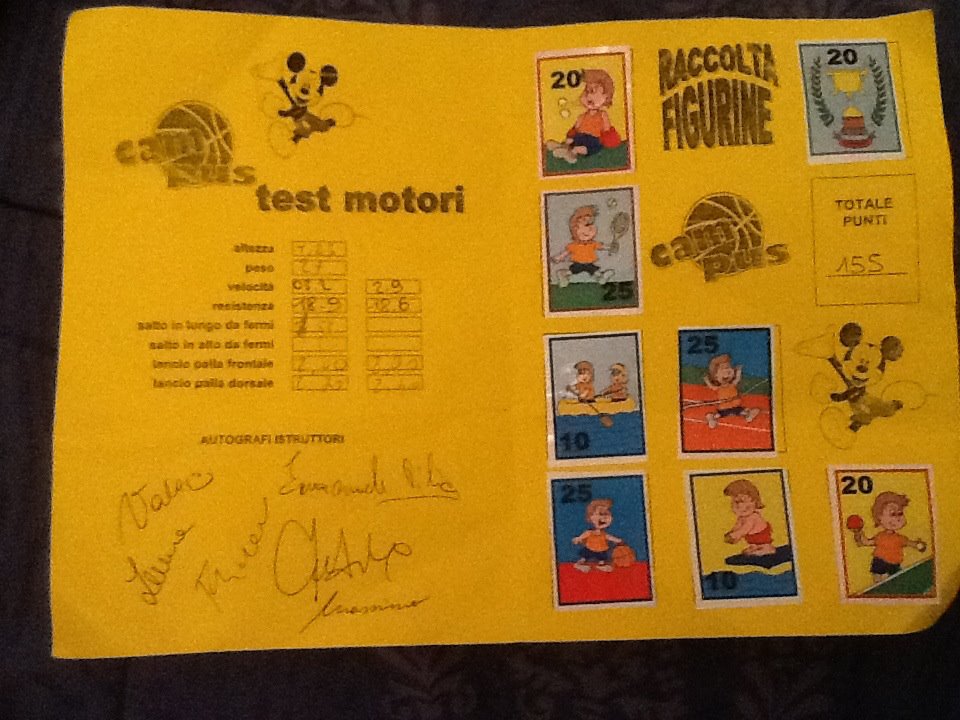 cam
pus
test motori
altezza
peso
velocità 2.9
resistenza 18.9 18.6
salto in lungo da fermi
salto in alto da fermi
lancio palla frontale
lancio palla dorsale
AUTOGRAFI ISTRUTTORI
Massimo
RACCOLTA
FIGURINE
20
20
25
cam
pus
TOTALE
PUNTI
155
10
25
25
10
20